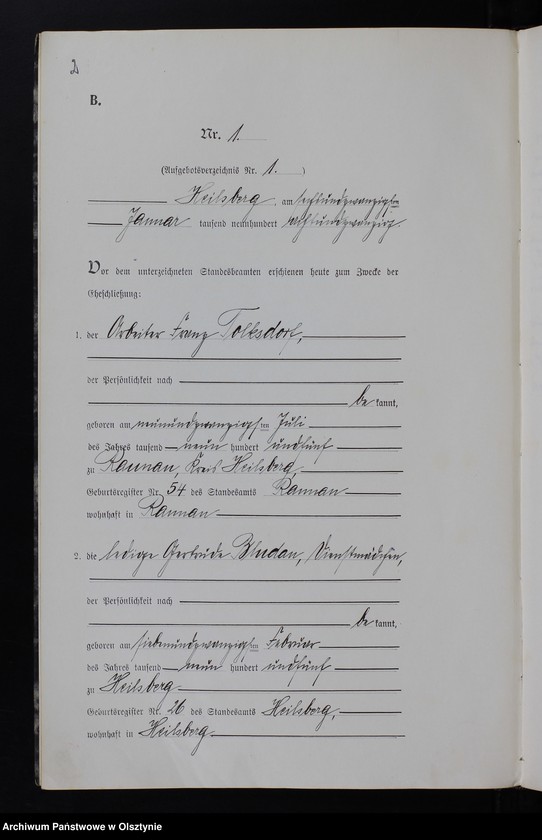 2
B.
Nr. 1.
(Aufgebotsverzeichnis Nr. 1. )
Heilsberg, am sechsundzwanzigsten
Januar tausend neunhundert achtundzwanzig.
Vor dem unterzeichneten Standesbeamten erschienen heute zum Zwecke der
Eheschließung:
1. der Arbeiter Franz Tolksdorf,
der Persönlichkeit nach
be kannt,
geboren am neunundzwanzigsten Juli
des Jahres tausend neun hundert undfünf
zu Raunau, Kreis Heilsberg,
Geburtsregister Nr. 54 des Standesamts Raunau
wohnhaft in Raunau
2. die ledige Gertrude Bludau, Dienstmädchen,
der Persönlichkeit nach
be kannt,
geboren am siebenundzwanzigsten Februar
des Jahres tausend neun hundert undfünf
zu Heilsberg
Geburtsregister Nr. 26 des Standesamts Heilsberg,
wohnhaft in Heilsberg
Archiwum Państwowe w Olsztynie